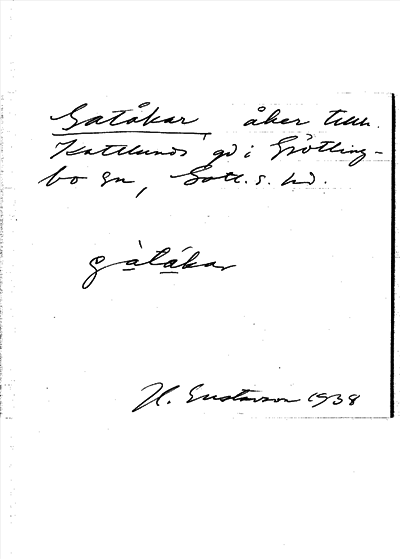 Gatåkar, åker tillh.
Kattlunds gd i Grötling-
bo sn, Gotl. s. hd.
gàtákar
H. Gustavson 1938